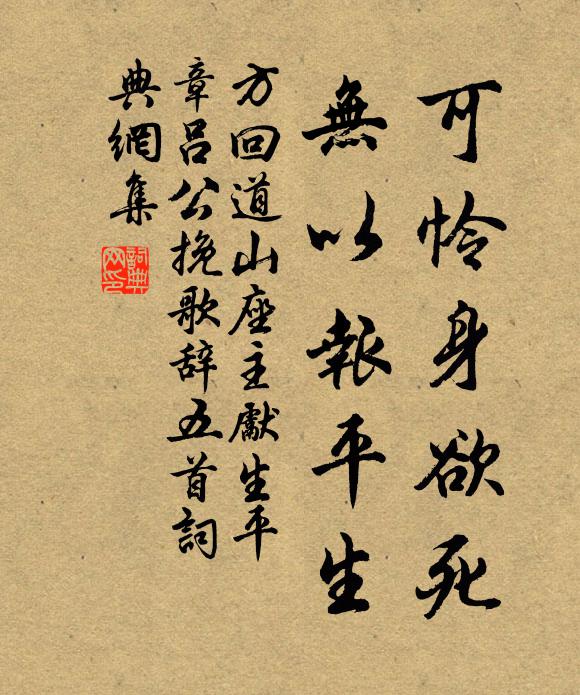 可怜身欲死
無以報平生
方回道山座主獻生平
章呂公挽歌辞五首詞
典網集
詞典網印